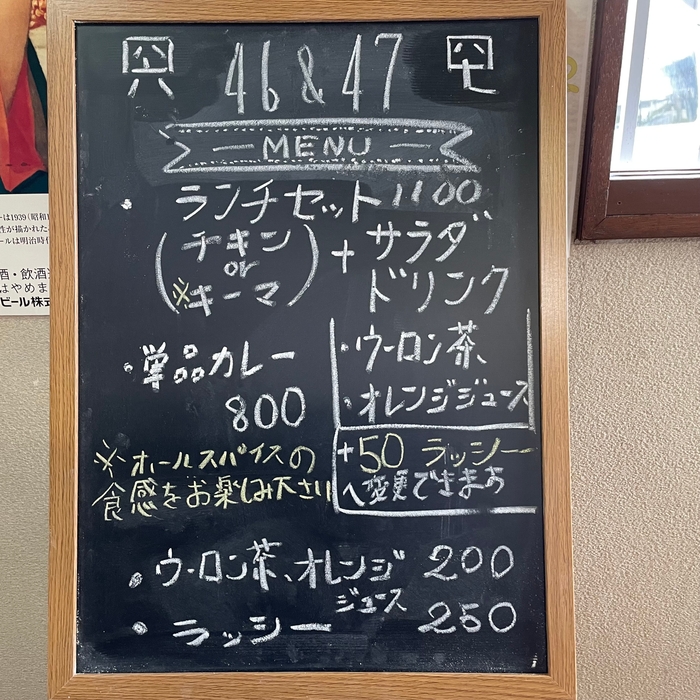 46 & 47
MENU
・ランチセット 1100
(チキン or ※キーマ) + サラダ ドリンク
・ウーロン茶、
・オレンジジュース
+50 ラッシー
へ変更できます
・単品カレー
800
※ホールスパイスの
食感をお楽しみ下さい
・ウーロン茶、オレンジジュース 200
・ラッシー 250
は1939(昭和
酒・飲酒
はやめま
ビール株式